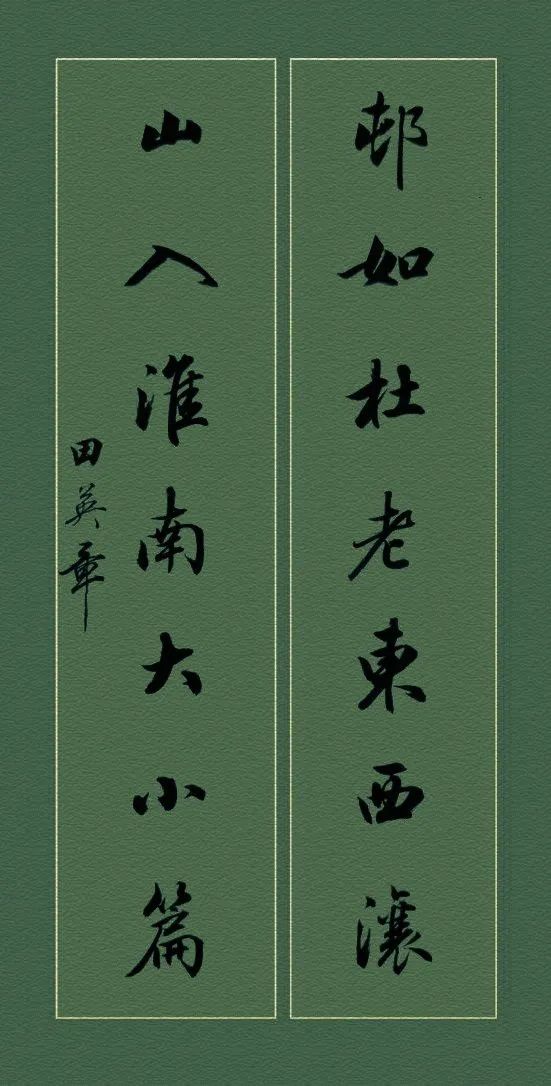 邨如杜老東西瀼
山入淮南大小篇
田英章